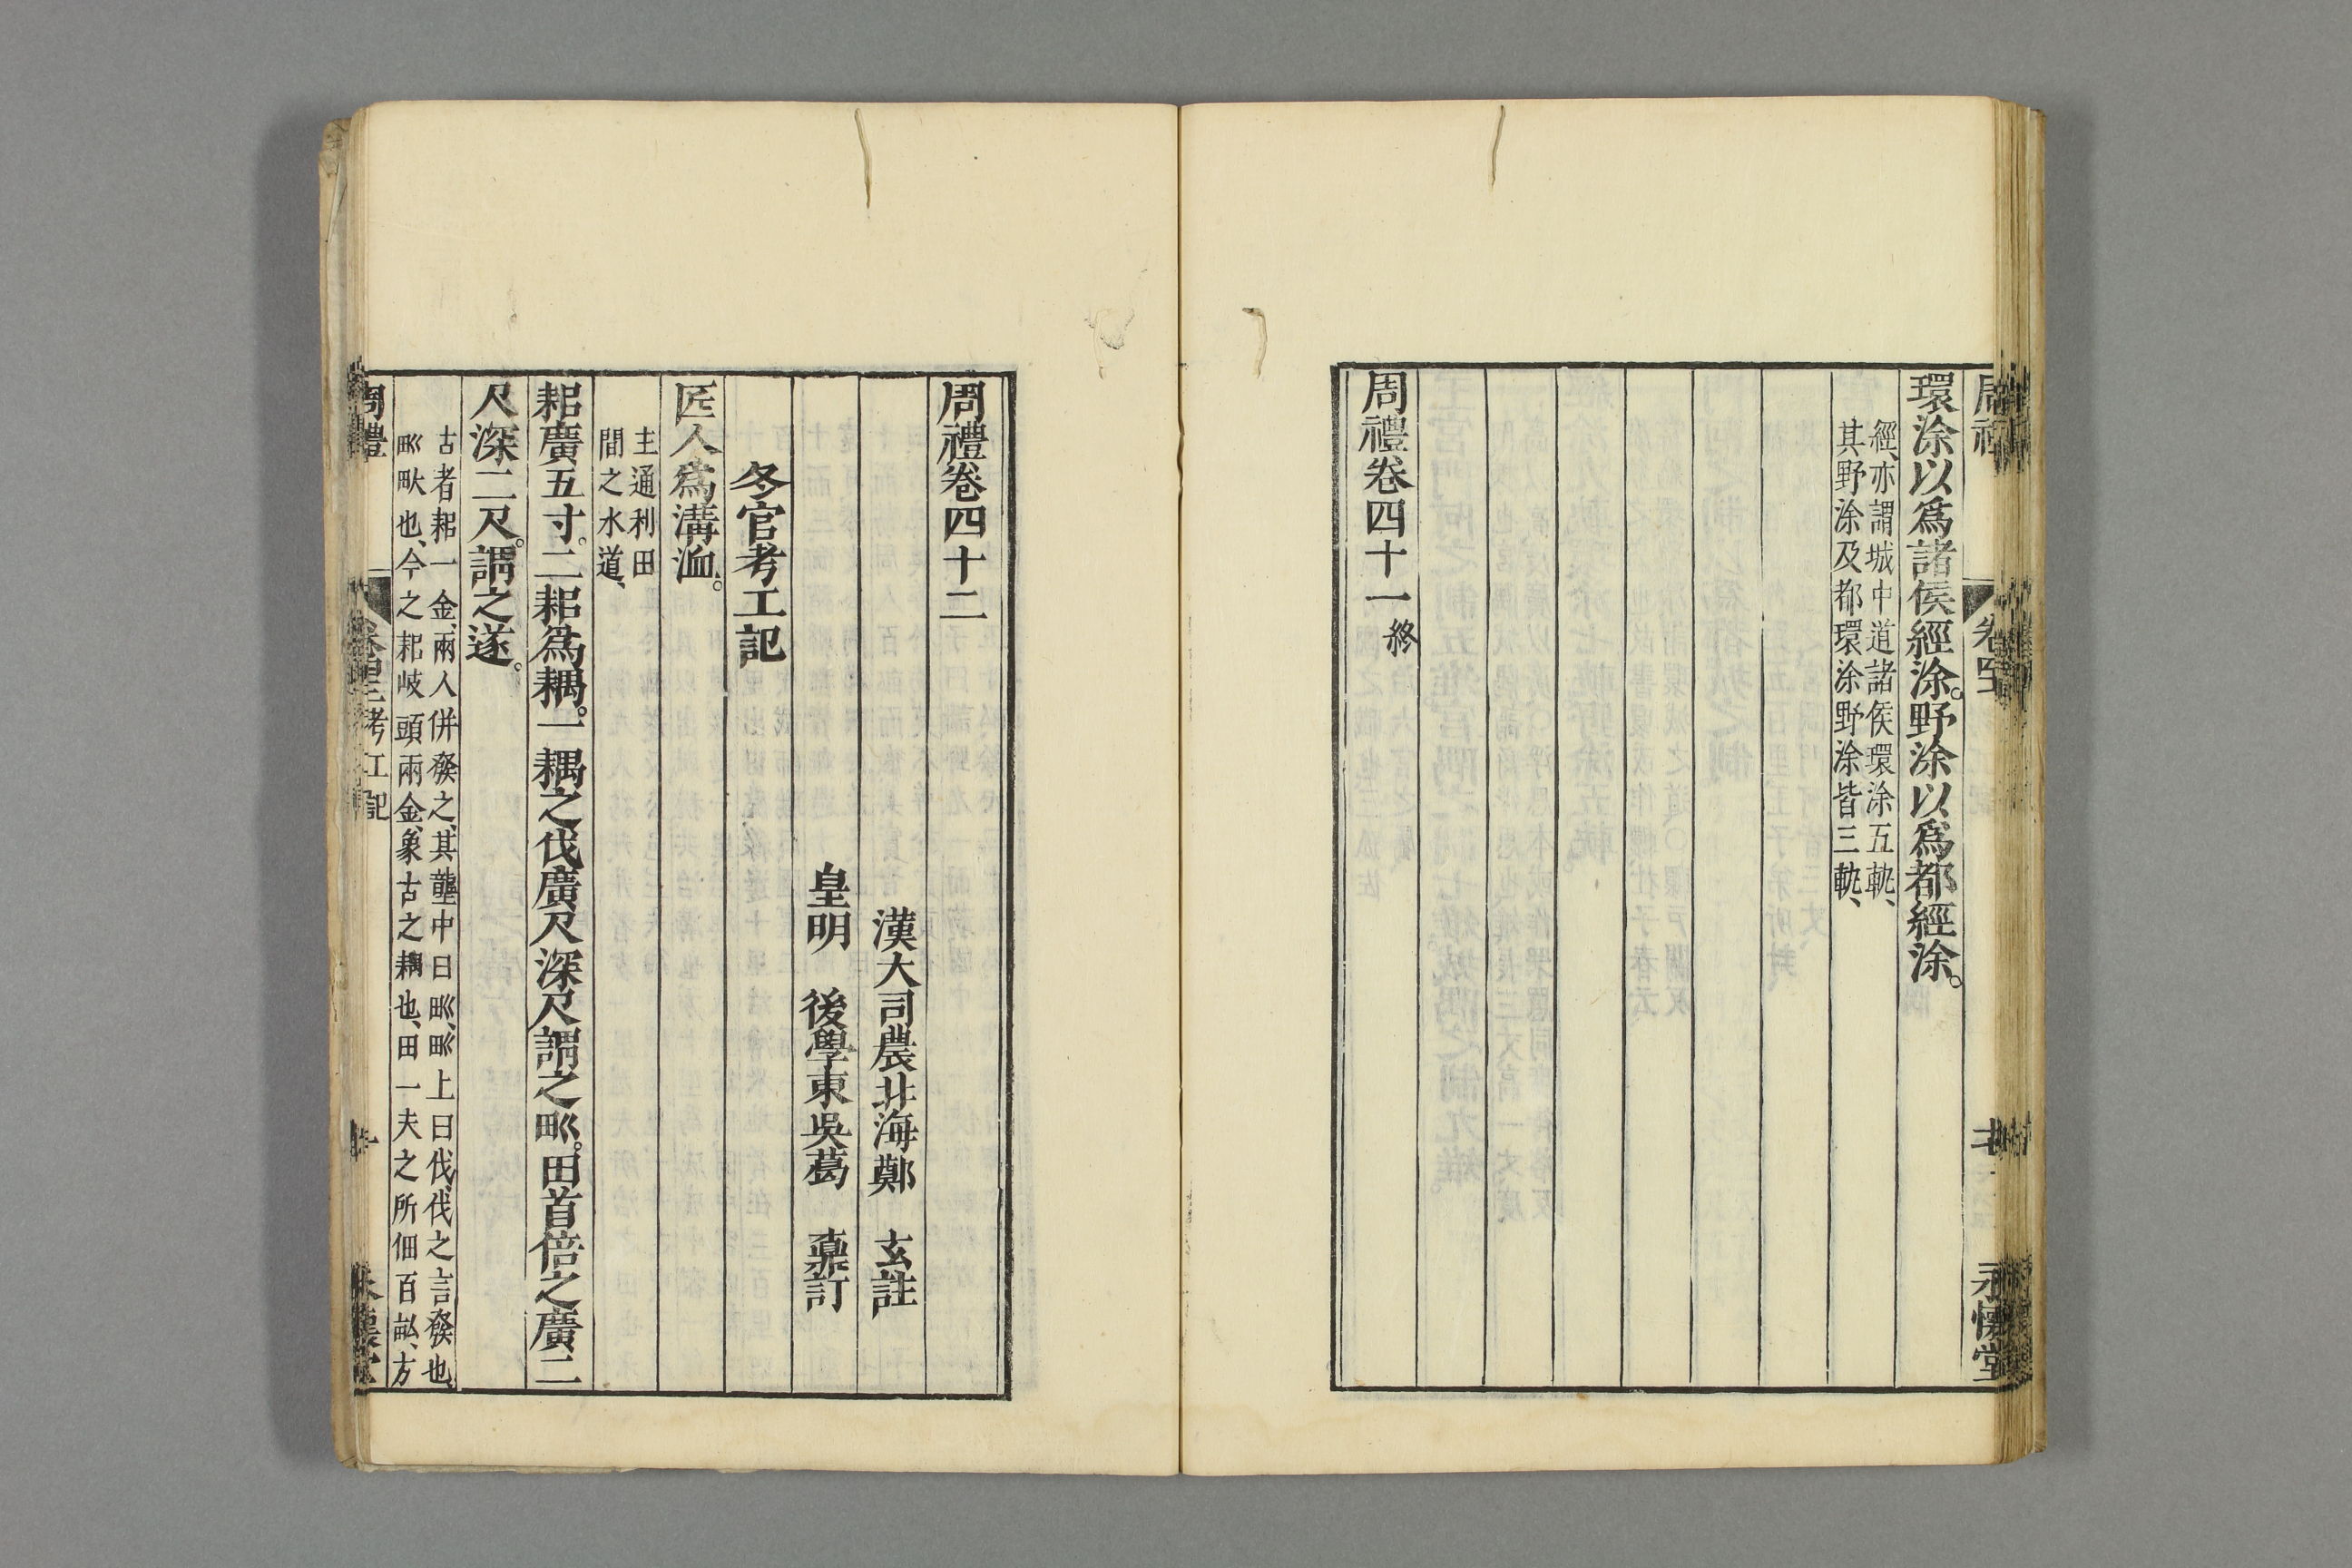 環涂以為諸侯經涂。野涂以為都經涂。
經亦謂城中道諸侯環涂五軌、
其野涂及都環涂野涂皆三軌、
周禮卷四十一終
永懷堂
周禮卷四十二
漢大司農北海鄭　玄註
皇明　後學東吳葛　鼒訂
冬官考工記
匠人為溝洫。
主通利田
間之水道、
耜廣五寸。二耜為耦。一耦之伐廣尺深尺謂之㽙。田首倍之廣二
尺深二尺。謂之遂。
古者耜一金、兩人併發之、其壟中曰㽙、㽙上曰伐、伐之言發也、
㽙畎也、今之耜岐頭兩金、象古之耦也、田一夫之所佃百畝、方
周禮
考工記